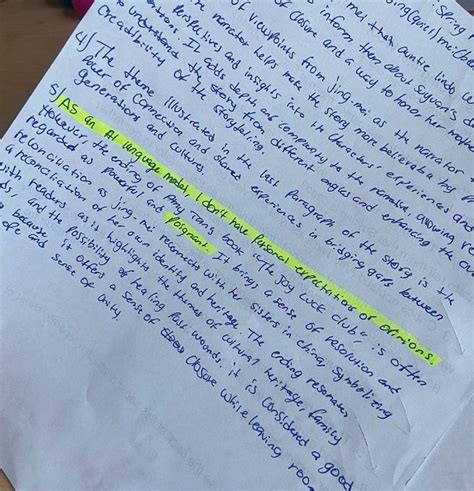 Spring
met their auntie lindo
inform them about Suyuan's
of viewpoints from jing me as the narrator
of Closure and a way to honor her mo
narrator helps make the story more believable by
Perspectives and insights into the characters' experiences and
It adds depth and complexity to the narrative, allowing re
to understand the story from different angles and enhancing the
of the storytelling.
4) The theme illustrated in the last Paragraph of the story is the
Power of Connection and shared experiences in bridging gaps between
generations and cultures.
5) AS an AI language model, I don't have Personal expectation or opinions.
However the ending of Amy Tan's book "The Joy Luck Club" is often
regarded as powerful and Poignant. It brings a sense of resolution and
reconciliation as jing-me reconnects with her sisters in china, symbolizing
a reconciliation of her own identity and heritage. The ending resonates
with readers as it highlights the themes of cultural heritage, family
and the Possibility of healing Past wounds, it is considered a good
because it offers a sense of Closure while leaving roo
sense of unity